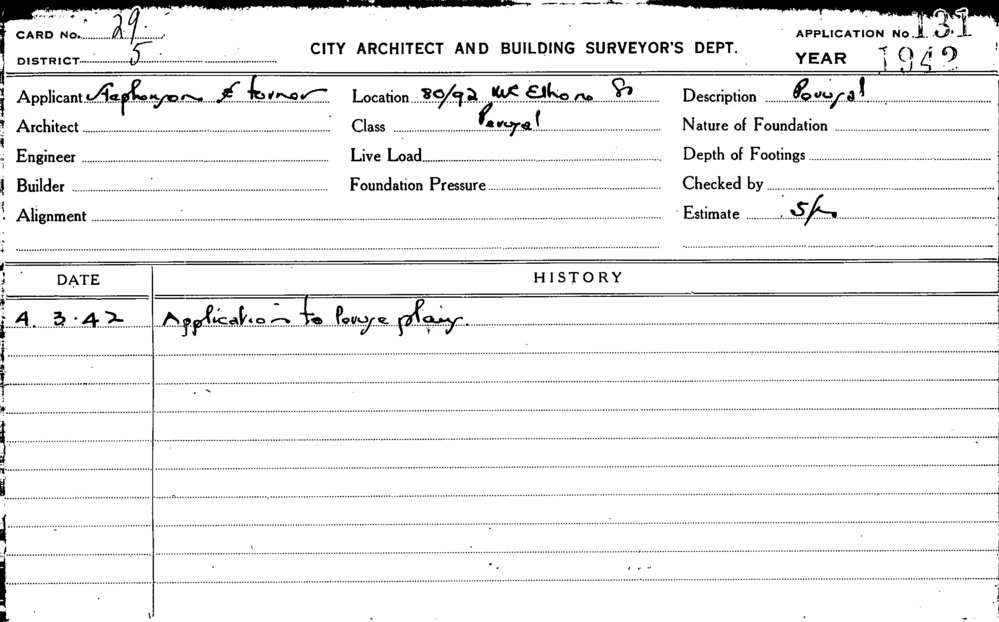 CARD No. 29
DISTRICT 5
CITY ARCHITECT AND BUILDING SURVEYOR'S DEPT.
APPLICATION No. 131
YEAR 1942
Applicant Stephenson & Turner
Location 80/92 McElhone St
Description Perusal
Architect
Class Perusal
Nature of Foundation
Engineer
Live Load
Depth of Footings
Builder
Foundation Pressure
Checked by
Alignment
Estimate 5/-
DATE
HISTORY
4. 3. 42 Application to Peruse plans.